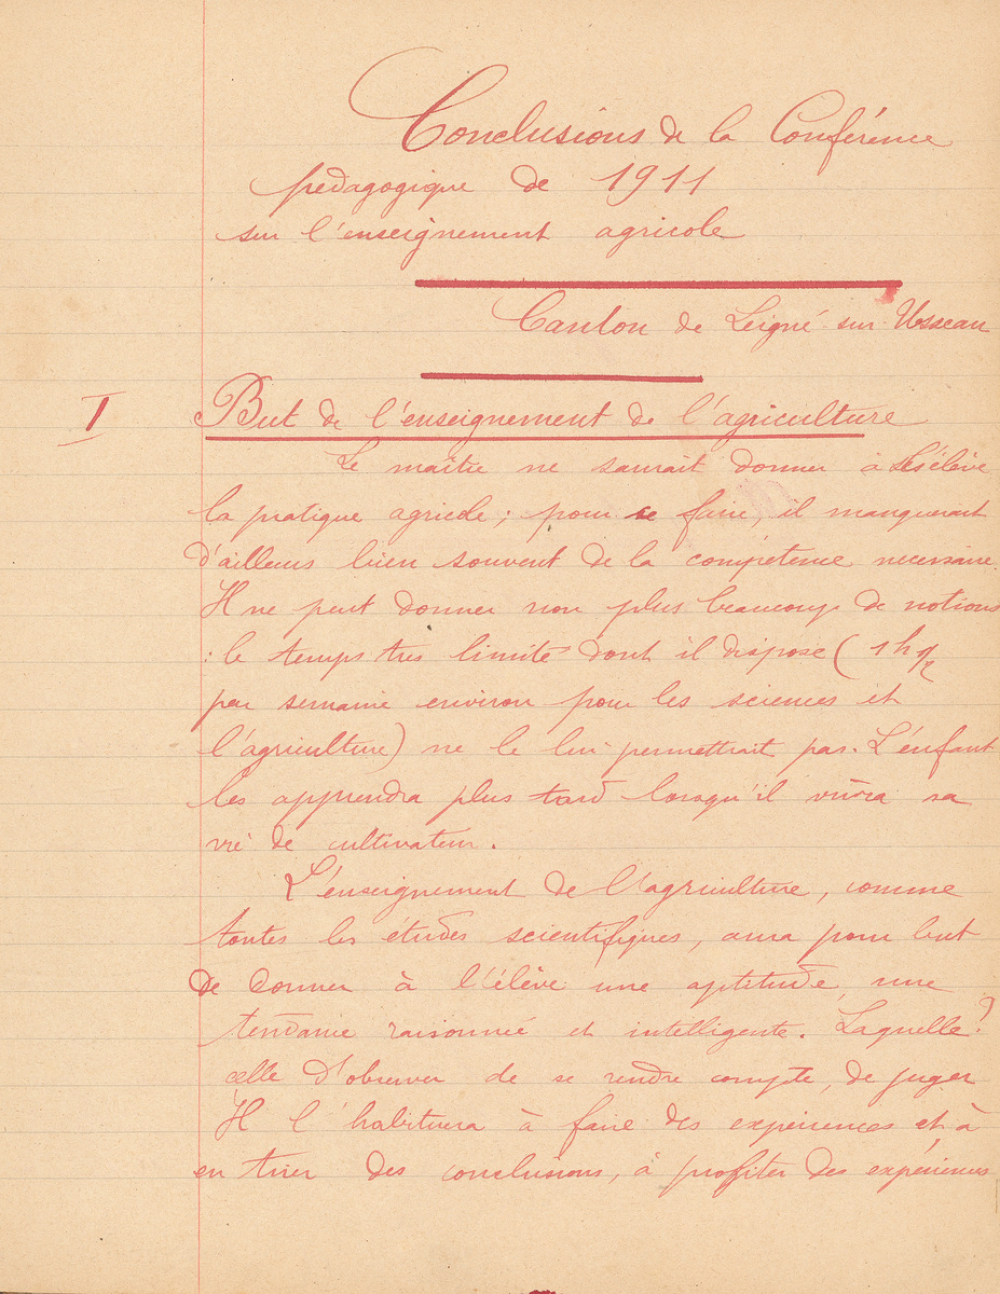 Conclusions de la Conférence
pedagogique de 1911
sur l'enseignement agricole
Canton de Leigné sur Usseau
I But de l'enseignement de l'agriculture
Le maître ne saurait donner à ses élève
la pratique agricole ; pour se faire, il manquerait
d'ailleurs bien souvent de la compétence necessaire.
Il ne peut donner non plus beaucoup de notions
: le temps tres limité dont il dispose ( 1h 1/2
par semaine environ pour les sciences et
l'agriculture) ne le lui permettrait pas. L'enfant
les apprendra plus tard lorsqu'il vivra sa
vie de cultivateur.
L'enseignement de l'agriculture, comme
toutes les études scientifiques, aura pour but
de donner à l'élève une aptitude, une
tendance raisonnée et intelligente. Laquelle ?
celle d'observer de se rendre compte, de juger
Il l'habituera à faire des expériences et à
en tirer des conclusions, à profiter des expériences